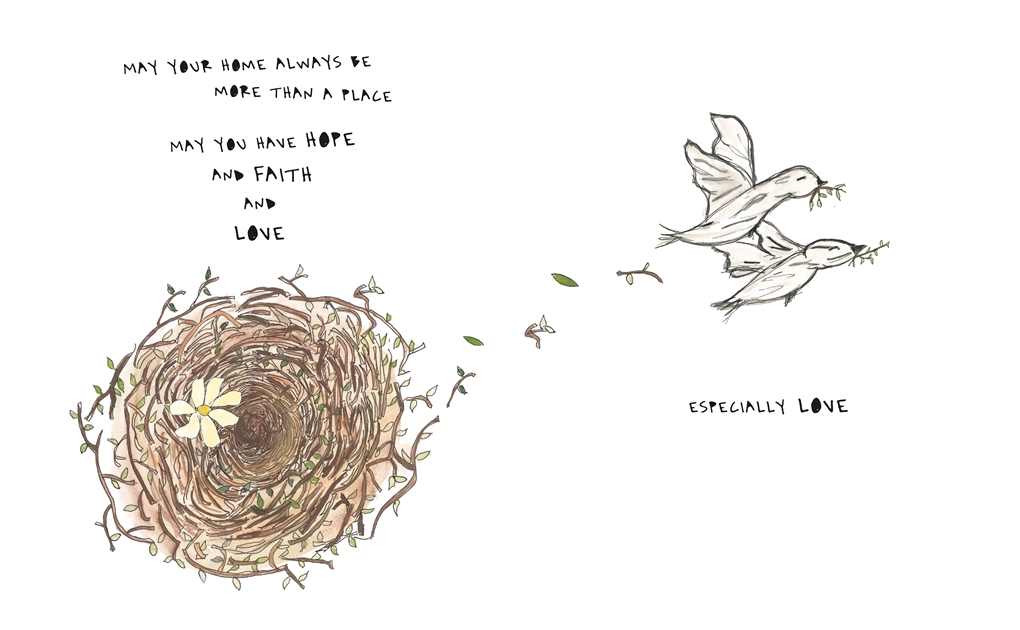 MAY YOUR HOME ALWAYS BE
MORE THAN A PLACE
MAY YOU HAVE HOPE
AND FAITH
AND
LOVE
ESPECIALLY LOVE